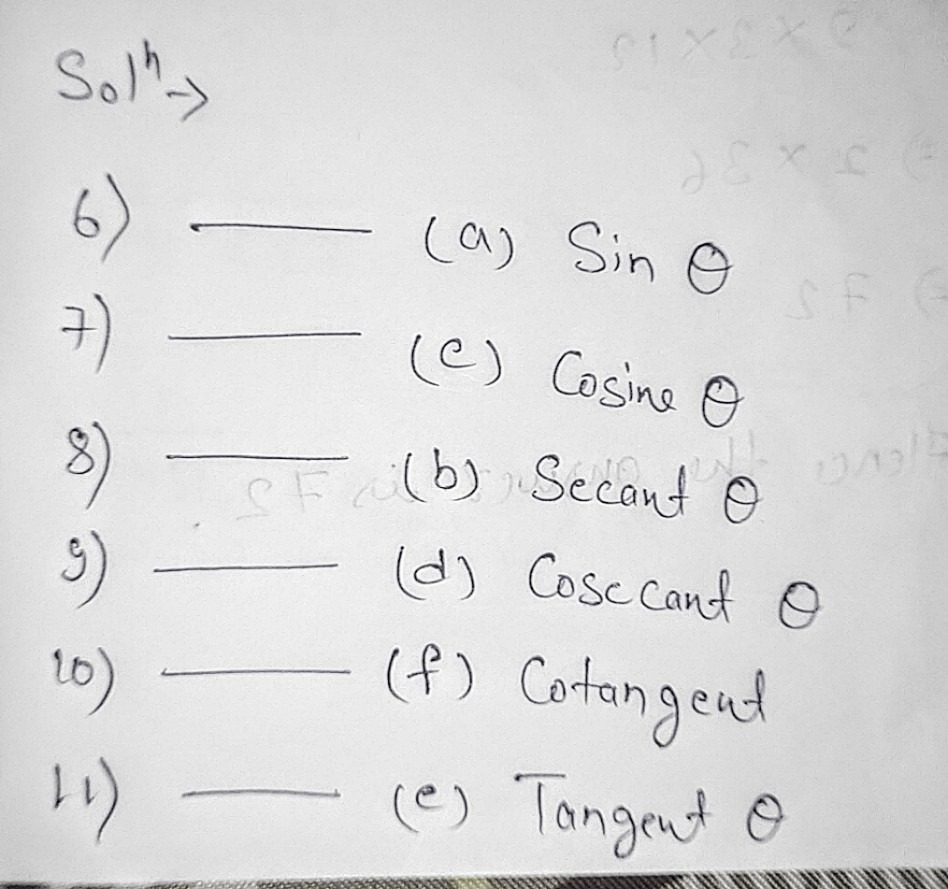 Solⁿ →
6) —— (a) Sin θ
7) —— (c) Cosine θ
8) —— (b) Secant θ
9) —— (d) Cosecant θ
10) —— (f) Cotangent
11) —— (e) Tangent θ